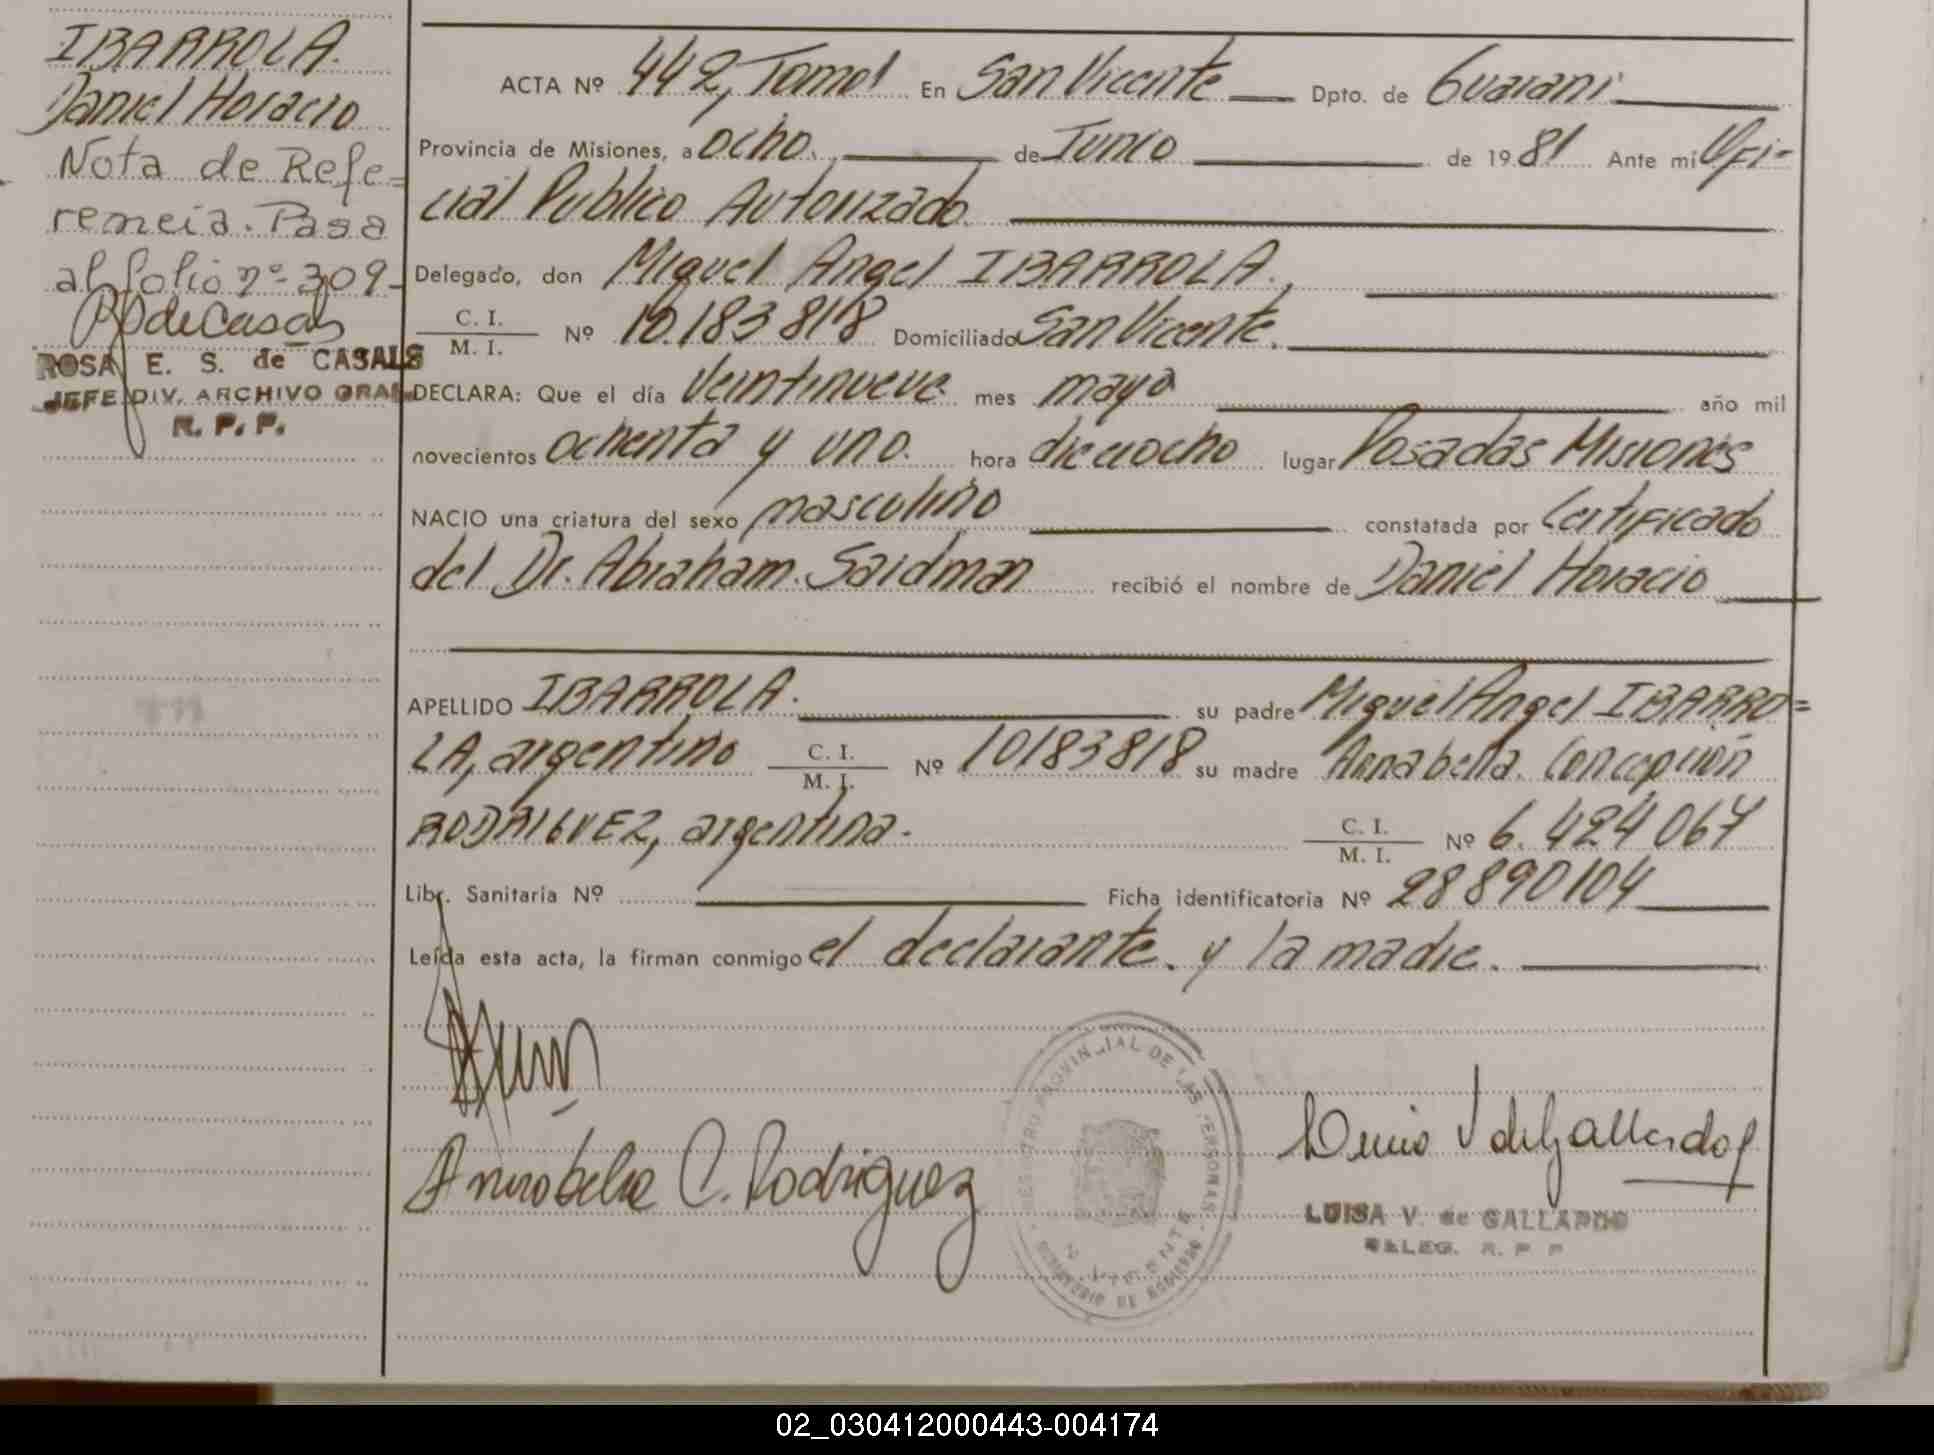 IBARROLA.
Daniel Horacio
Nota de Refe=
rencia. Pasa
al folio nº 309-
RSdeCasals
ROSA E. S. de CASALS
JEFE DIV. ARCHIVO GRAL.
R. P. P.
ACTA Nº 442, Tomo I En San Vicente Dpto. de Guarani
Provincia de Misiones, a ocho. de Junio de 1981 Ante mi Ofi-
cial Publico Autorizado.
Delegado, don Miguel Angel IBARROLA.,
C. I. / M. I. Nº 10.183.818 Domiciliado San Vicente.
DECLARA: Que el día Veintinueve mes mayo año mil
novecientos ochenta y uno. hora dieciocho lugar Posadas Misiones
NACIO una criatura del sexo masculino constatada por Certificado
del Dr. Abraham Saidman recibió el nombre de Daniel Horacio
APELLIDO IBARROLA. su padre Miguel Angel IBARRO=
LA, argentino C. I. / M. I. Nº 10183818 su madre Annabella Concepción
RODRIGUEZ, argentina. C. I. / M. I. Nº 6.424.067
Libr. Sanitaria Nº Ficha identificatoria Nº 28890104
Leída esta acta, la firman conmigo el declarante y la madre.
Annabella C. Rodriguez
REGISTRO PROVINCIAL DE LAS PERSONAS
S. VICENTE
MINISTERIO DE GOBIERNO
V de Gallardo
LUISA V. de GALLARDO
DELEG. R. P. P.
02_030412000443-004174